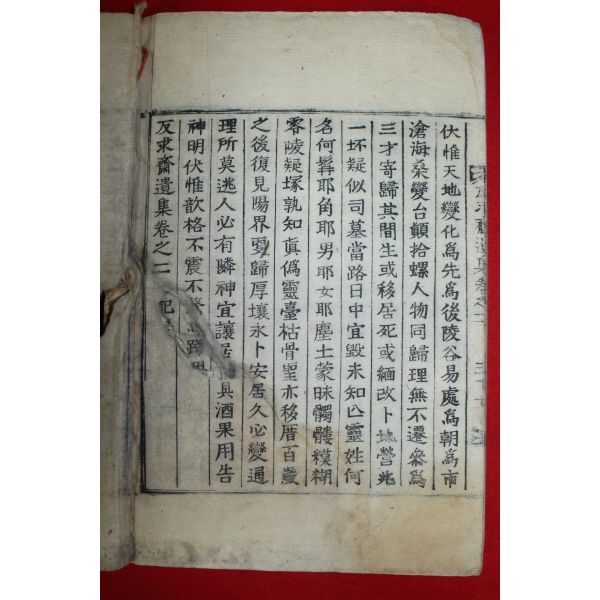 伏惟天地變化爲先爲後陵谷易處爲朝爲市
滄海桑變台顚拾螺人物同歸理無不遷參爲
三才寄歸其間生或移居死或緬改卜地營兆
一坏疑似司墓當路日中宜毀未知亾靈姓何
名何髥耶角耶男耶女耶塵土蒙昧髑髏糢糊
零陵疑塚孰知眞僞靈臺枯骨聖亦移厝百歲
之後復見陽界 歸厚壤永卜安居久必變通
理所莫逃人必有隣神宜讓居 具酒果用告
神明伏惟歆格不震不
反求齋遺集卷之二